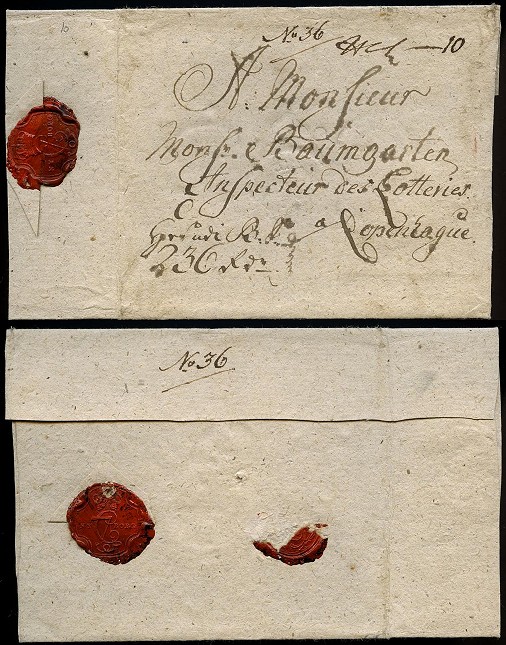 No 36
10
A. Monsieur
Monsr. Baumgarten
Inspecteur des Lotteries.
a Copenhague.
236 Rdr
No 36